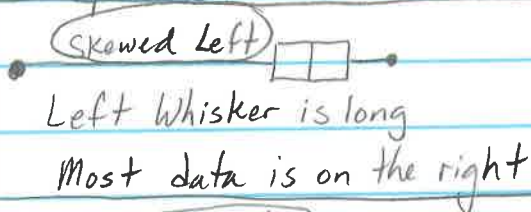 Skewed Left
Left Whisker is long
Most data is on the right